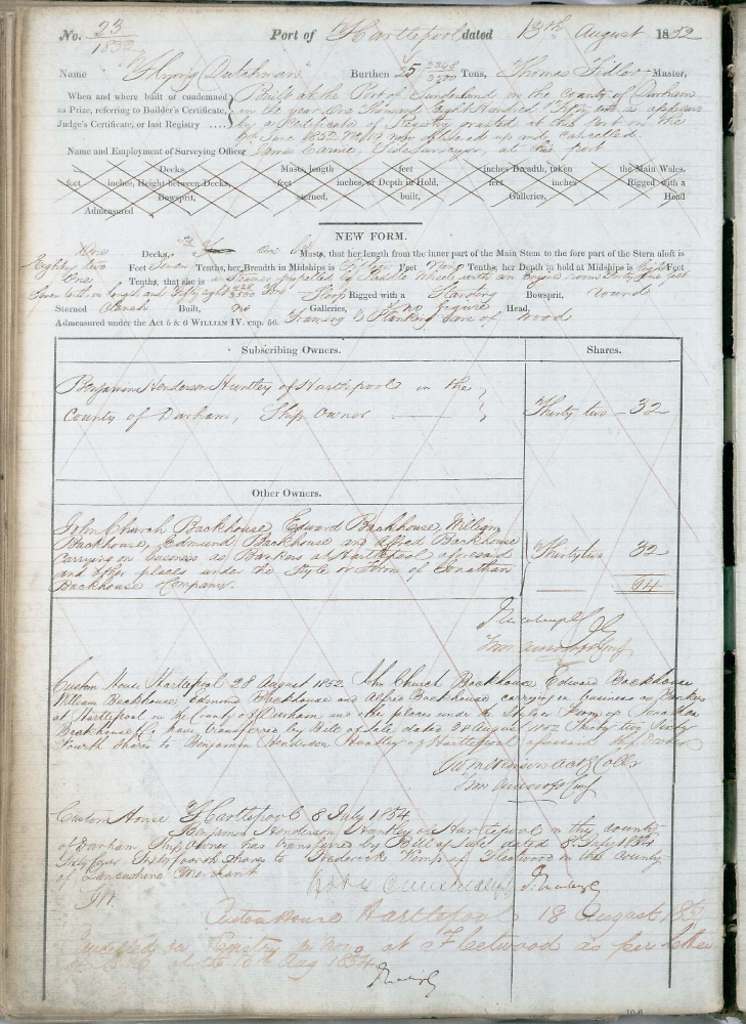 No. 23/1852 Port of Hartlepool dated 13th August 1852
Name Flying Dutchman Burthen 25 2248/3500 Tons, Thomas Master,
When and where built or condemned Built at the Port of Sunderland in the County of Durham
as Prize, referring to Builder's Certificate, in the year One Thousand Eight Hundred Fifty as appears
Judge's Certificate, or last Registry by a Certificate of Registry granted at this Port on the
1852 No now delivered up and cancelled
Name and Employment of Surveying Officer James Tide Surveyor, at this port
Decks, Masts, length feet inches Breadth, taken the Main Wales.
feet inches, Height between Decks, feet inches, or Depth in Hold, feet inches Rigged with a
Bowsprit, sterned, built, Galleries, Head
Admeasured
NEW FORM.
One Decks, one Masts, that her length from the inner part of the Main Stem to the fore part of the Stern aloft is
Eighty two Feet Seven Tenths, her Breadth in Midships is Feet Nine Tenths, her Depth in hold at Midships is Eight Feet
One Tenths, that she is a Steamer propelled by Paddle Wheels with an Engine room feet
Seven tenths in length and Fifty eight Sloop Rigged with a Standing Bowsprit, round
Sterned Clench Built, no Galleries, no figure Head,
Admeasured under the Act 5 & 6 WILLIAM IV. cap. 56. Framing & Planking are of Wood
Subscribing Owners. Shares.
Benjamin Henderson Huntley of Hartlepool in the
County of Durham, Ship Owner Thirty two 32
Other Owners.
John Church Backhouse, Edward Backhouse, William
Backhouse, Edmund Backhouse and Alfred Backhouse
carrying on business as Bankers at Hartlepool aforesaid Thirty two 32
and other places under the Style or Firm of Jonathan 64
Backhouse Company.
Custom House Hartlepool 28 August 1852 John Church Backhouse Edward Backhouse
William Backhouse Edmund Backhouse and Alfred Backhouse carrying on business as Bankers
at Hartlepool in the County of Durham and other places under the Style or Firm of Jonathan
Backhouse & Co have transferred by Bill of Sale dated 28 August 1852 Thirty two Sixty
Fourth Shares to Benjamin Henderson Huntley of Hartlepool aforesaid Ship Owner
Actg Collr
Custom House Hartlepool 8 July 1854
Benjamin Henderson Huntley of Hartlepool in the County
of Durham Ship Owner has transferred by Bill of Sale dated 8 July 1854
Sixty four Sixty fourth Shares to Frederick Kemp of Fleetwood in the County
of Lancashire Merchant
Custom House Hartlepool 18 August 185
Registered de novo at Fleetwood as per Letter
16th Aug 1854